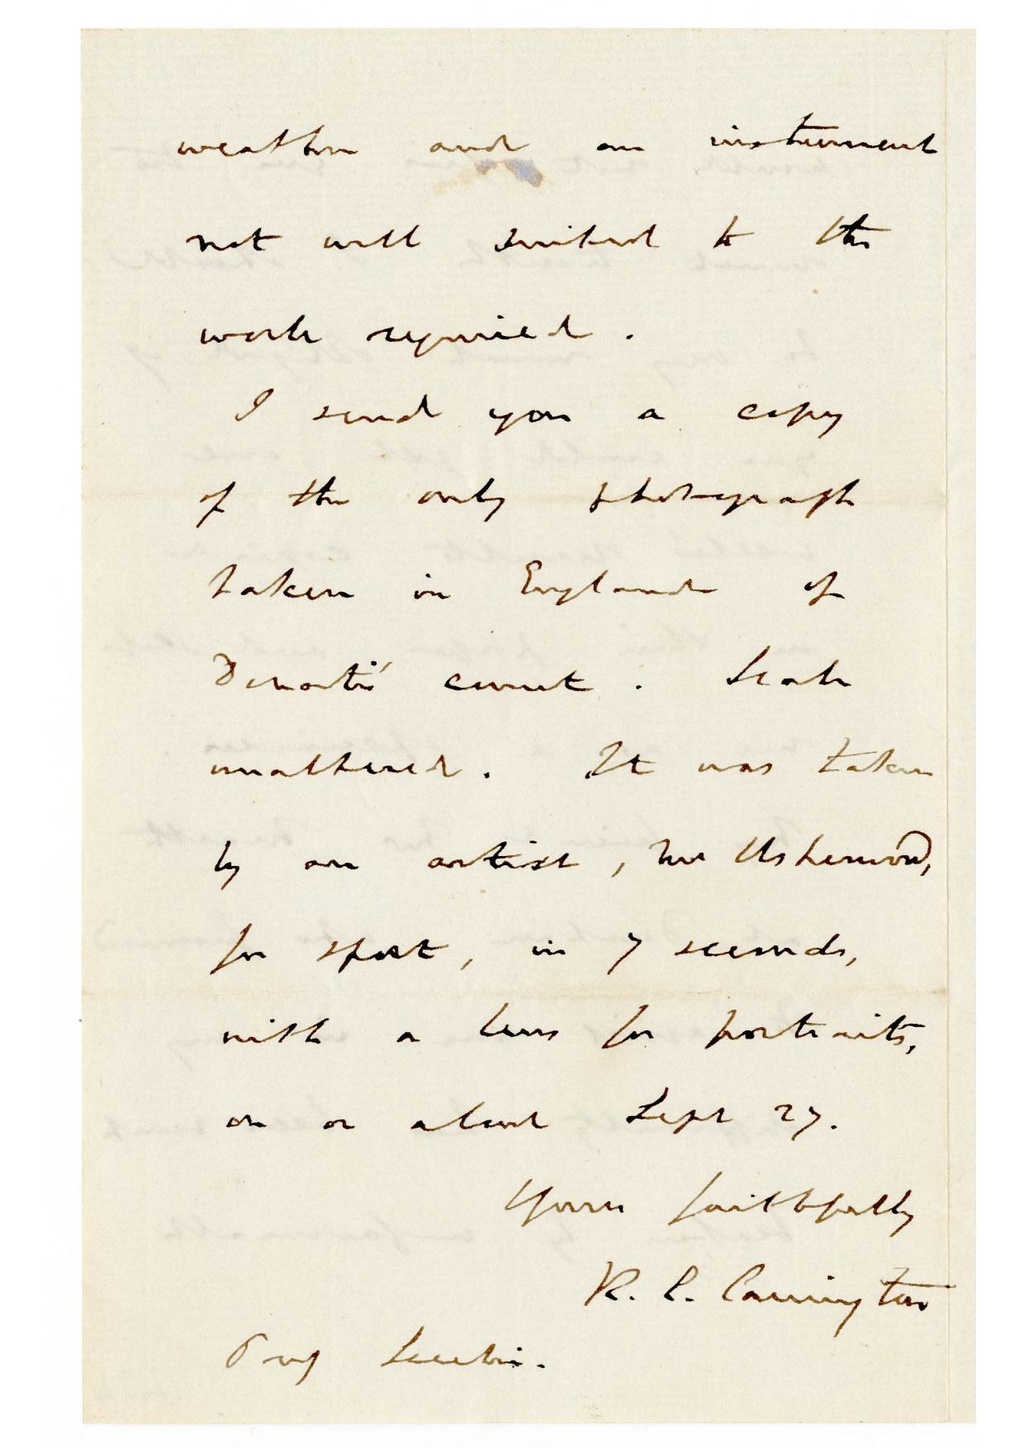 weather and an instrument
not well suited to the
work required.
I send you a copy
of the only photograph
taken in England of
Donati's comet. Scale
unaltered. It was taken
by an artist, Mr Usherwood,
for sport, in 7 seconds,
with a lens for portraits,
on or about Sept 27.
Yours faithfully
R. C. Carrington
Prof Secchi.